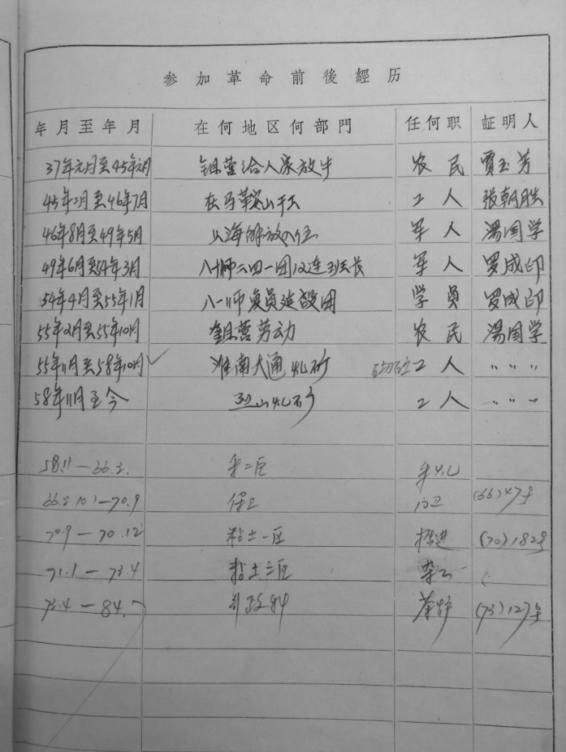 参加革命前後經历
年月至年月 在何地区何部門 任何职 証明人
37年元月至45年元月 给人家放牛 农民 賈玉芳
45年2月至46年7月 在马鞍山干工 工人 張朝胜
46年8月至49年5月 上海解放入伍 军人 湯国学
49年6月至54年3月 八一师二四一团12连班长 军人 罗成印
54年4月至55年1月 八一师复员建設团 学員 罗成印
55年2月至55年10月 劳动 农民 湯国学
55年11月至58年10月 淮南大通矿 工人 〃〃〃
58年11月至今 工人 〃〃〃
58.11—66.2. 采二区 采矿
—70.9 保卫 门卫 (66)47号
70.9—70.12 粘土一区 掘进 (70)182号
71.1—73.4 粘土三区
73.4—84. 行政科 茶炉 (73)127号